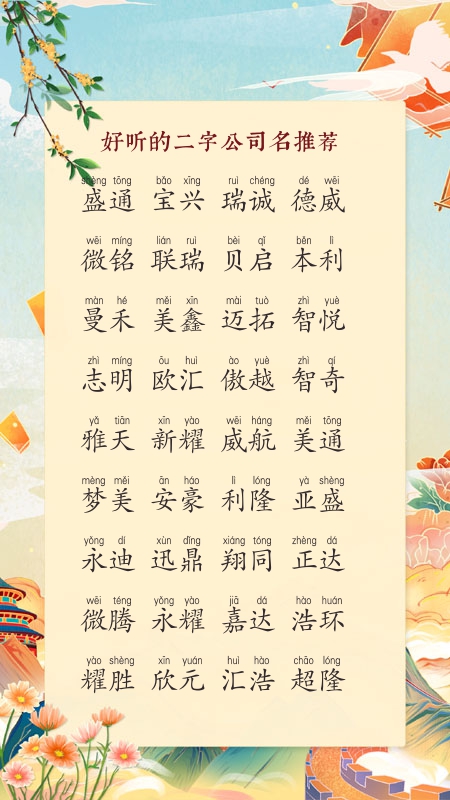 好听的二字公司名推荐
shèng tōng bǎo xīng ruì chéng dé wēi
盛通 宝兴 瑞诚 德威
wēi míng lián ruì bèi qǐ běn lì
微铭 联瑞 贝启 本利
màn hé měi xīn mài tuò zhì yuè
曼禾 美鑫 迈拓 智悦
zhì míng ōu huì ào yuè zhì qí
志明 欧汇 傲越 智奇
yǎ tiān xīn yào wēi háng měi tōng
雅天 新耀 威航 美通
mèng měi ān háo lì lóng yà shèng
梦美 安豪 利隆 亚盛
yǒng dí xùn dǐng xiáng tóng zhèng dá
永迪 迅鼎 翔同 正达
wēi téng yǒng yào jiā dá hào huán
微腾 永耀 嘉达 浩环
yào shèng xīn yuán huì hào chāo lóng
耀胜 欣元 汇浩 超隆